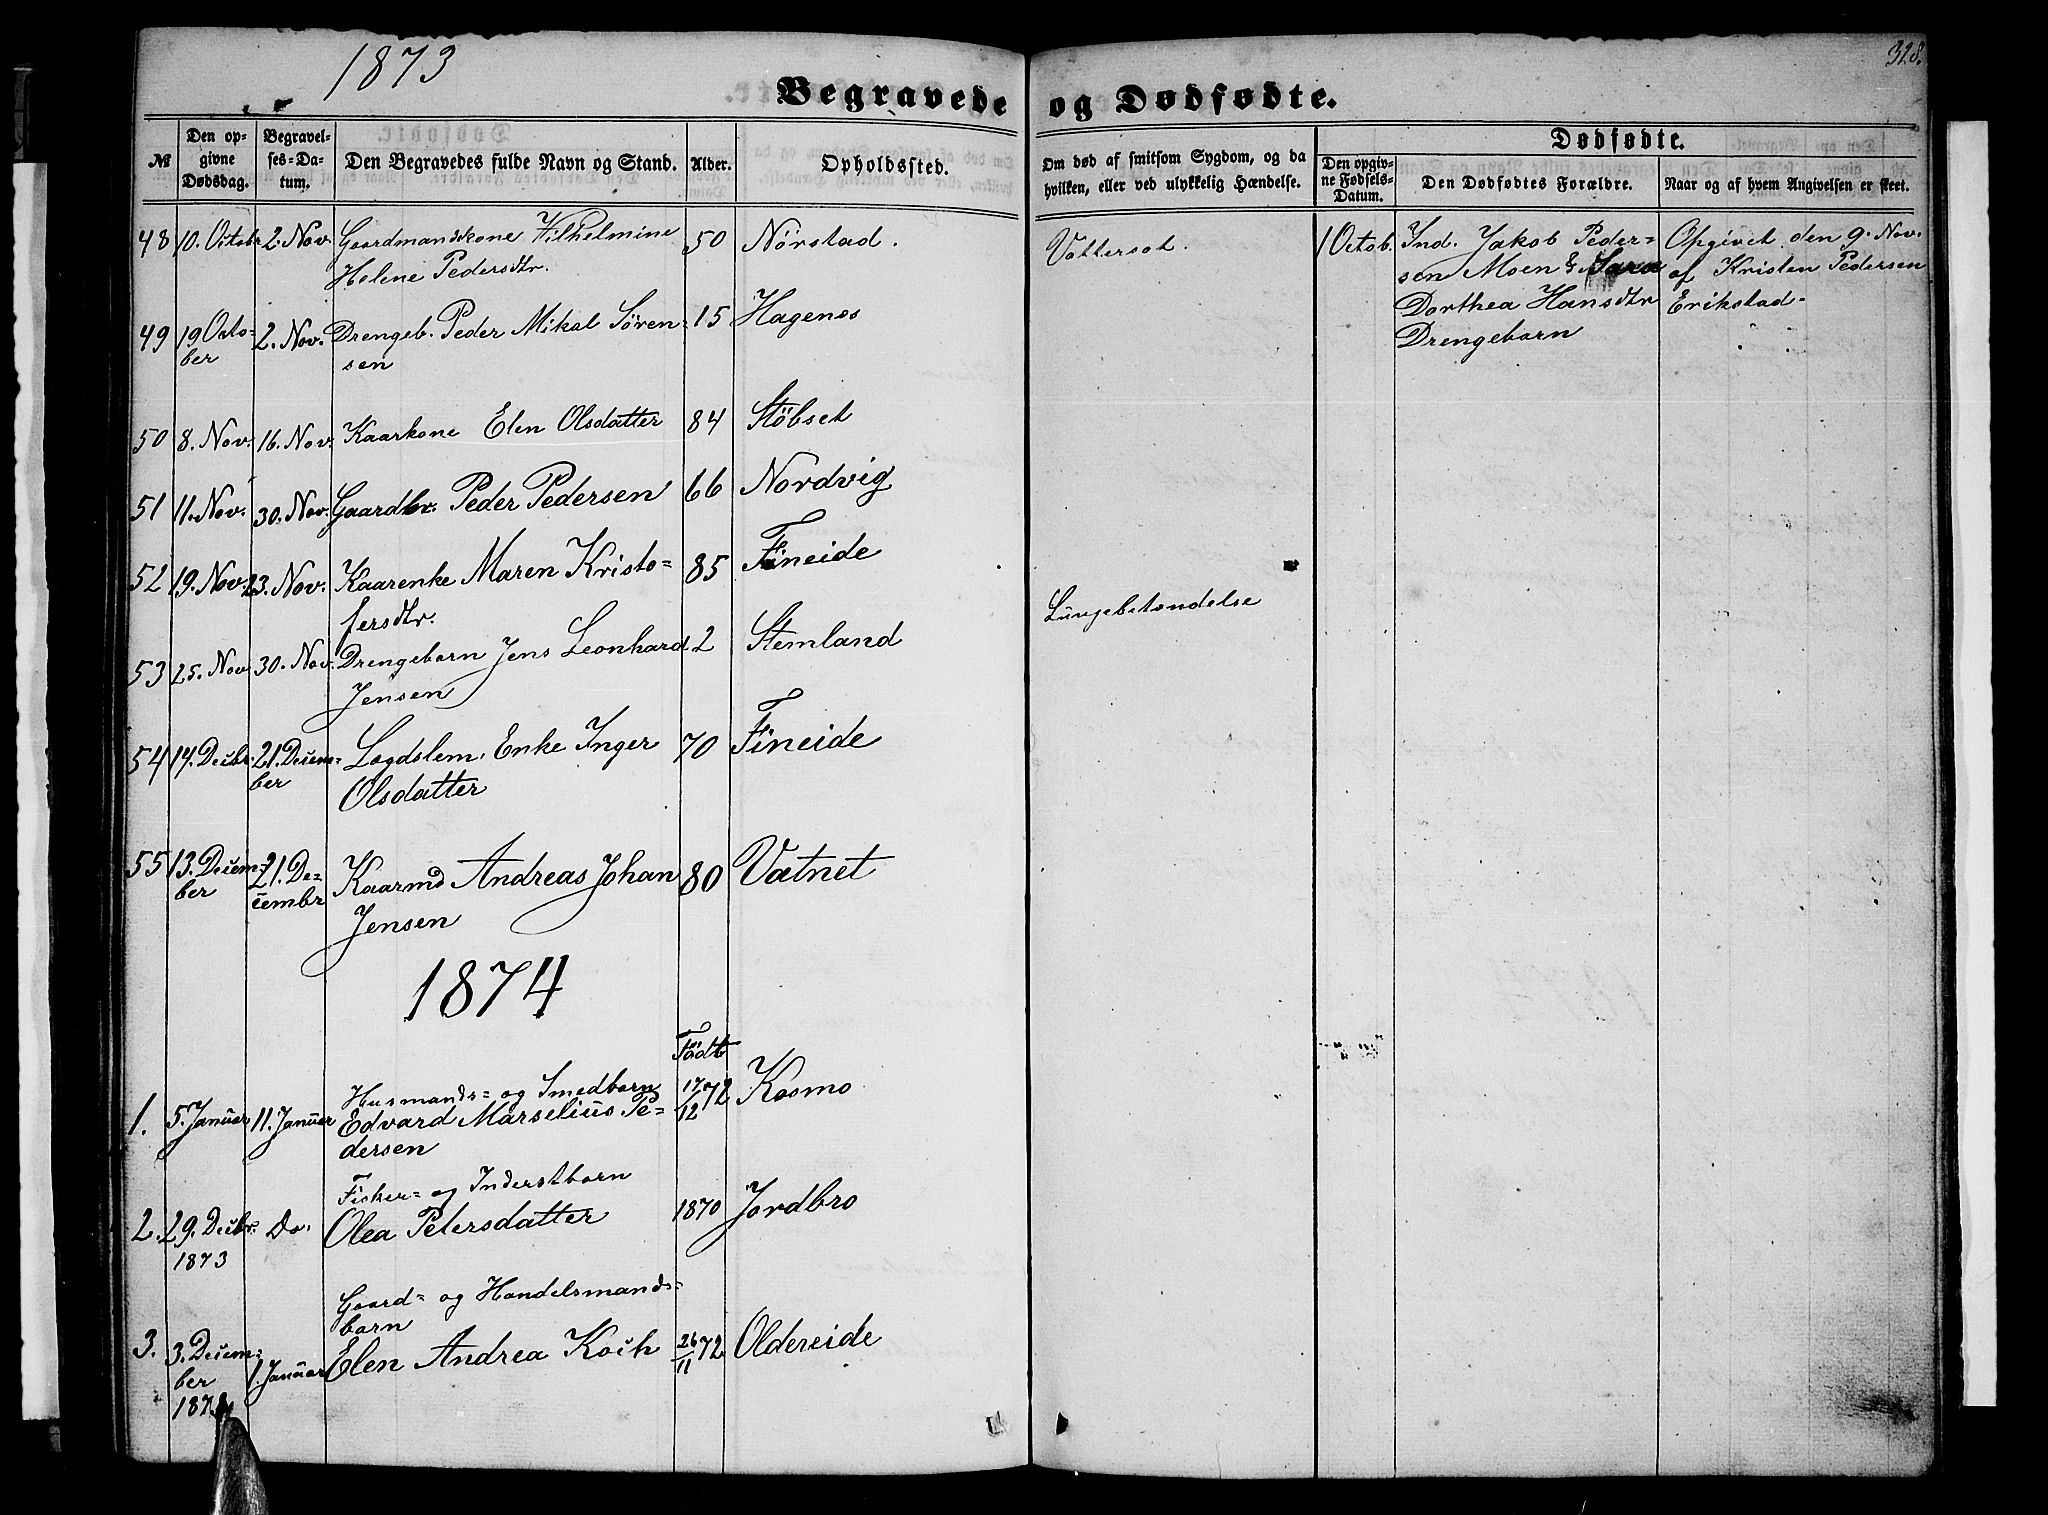 1873
328.
Begravede og Dødfødte.
№
Den opgivne Dødsdag.
Begravelses-Datum.
Den Begravedes fulde Navn og Stand.
Alder.
Opholdssted.
Om død af smitsom Sygdom, og da hvilken, eller ved ulykkelig Hændelse.
Dødfødte.
Den opgivne Fødsels-Datum.
Den Dødfødtes Forældre.
Naar og af hvem Angivelsen er skeet.
48 10. Octobr 2. Nov. Gaardmandskone Vilhelmine 50 Nørstad. Vattersot.
Helene Pedersdtr.
1 Octob. Ind. Jakob Peder= Opgivet den 9. Nov.
sen Moen & Sara af Kristen Pedersen
Dorthea Hansdtr Erikstad.
Drengebarn
49 19 Octo= 2. Nov. Drengeb. Peder Mikal Søren= 15 Hagenes
ber sen
50 8. Nov. 16. Nov. Kaarkone Elen Olsdatter 84 Støbset
51 11. Nov. 30. Nov. Gaardbr. Peder Pedersen 66 Nordvig
52 19. Nov. 23. Nov. Kaarenke Maren Kristo= 85 Fineide
fersdtr.
53 25. Nov 30. Nov. Drengebarn Jens Leonhard 2 Stemland Lungebetændelse
Jensen
54 14. Decbr. 21. Decem= Lægdslem. Enke Inger 70 Fineide
ber Olsdatter
55 13. Decem= 21. De= Kaarmd Andreas Johan 80 Vatnet
ber cembr Jensen
1874
Født
Husmands= og Smedbarn
1. 5. Januar 11. Januar Edvard Marselius Pe= 17/12 72 Kosmo
dersen
Fisker= og Inderstbarn
2. 29. Decbr. Do. Olea Petersdatter 1870 Jordbro
1873
Gaard= og Handelsmands=
barn
3. 3. Decem= 1. Januar Elen Andrea Koch 26/11 72 Oldereide
ber